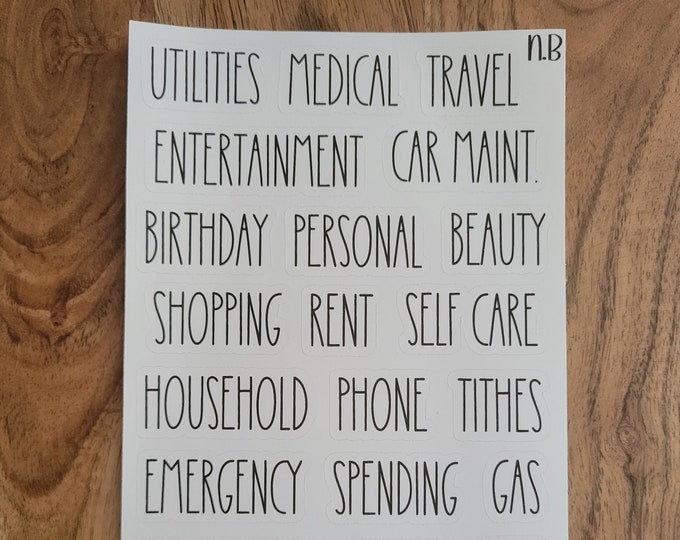 N.B
UTILITIES MEDICAL TRAVEL
ENTERTAINMENT CAR MAINT.
BIRTHDAY PERSONAL BEAUTY
SHOPPING RENT SELF CARE
HOUSEHOLD PHONE TITHES
EMERGENCY SPENDING GAS